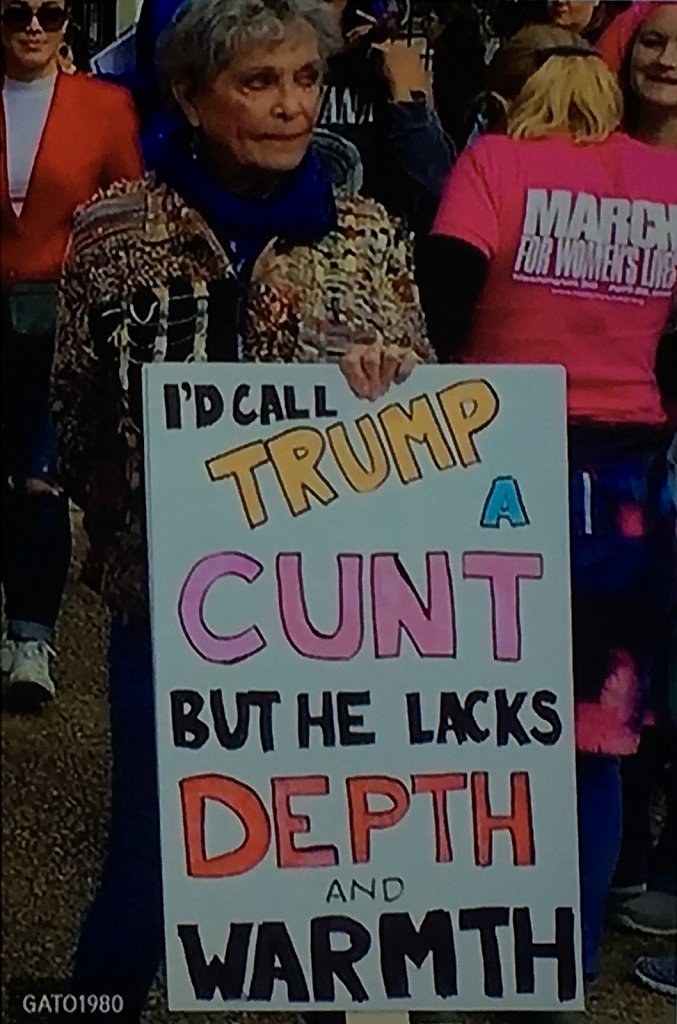 MARCH
FOR WOMEN'S
I'D CALL
TRUMP
A
CUNT
BUT HE LACKS
DEPTH
AND
WARMTH
GATO1980